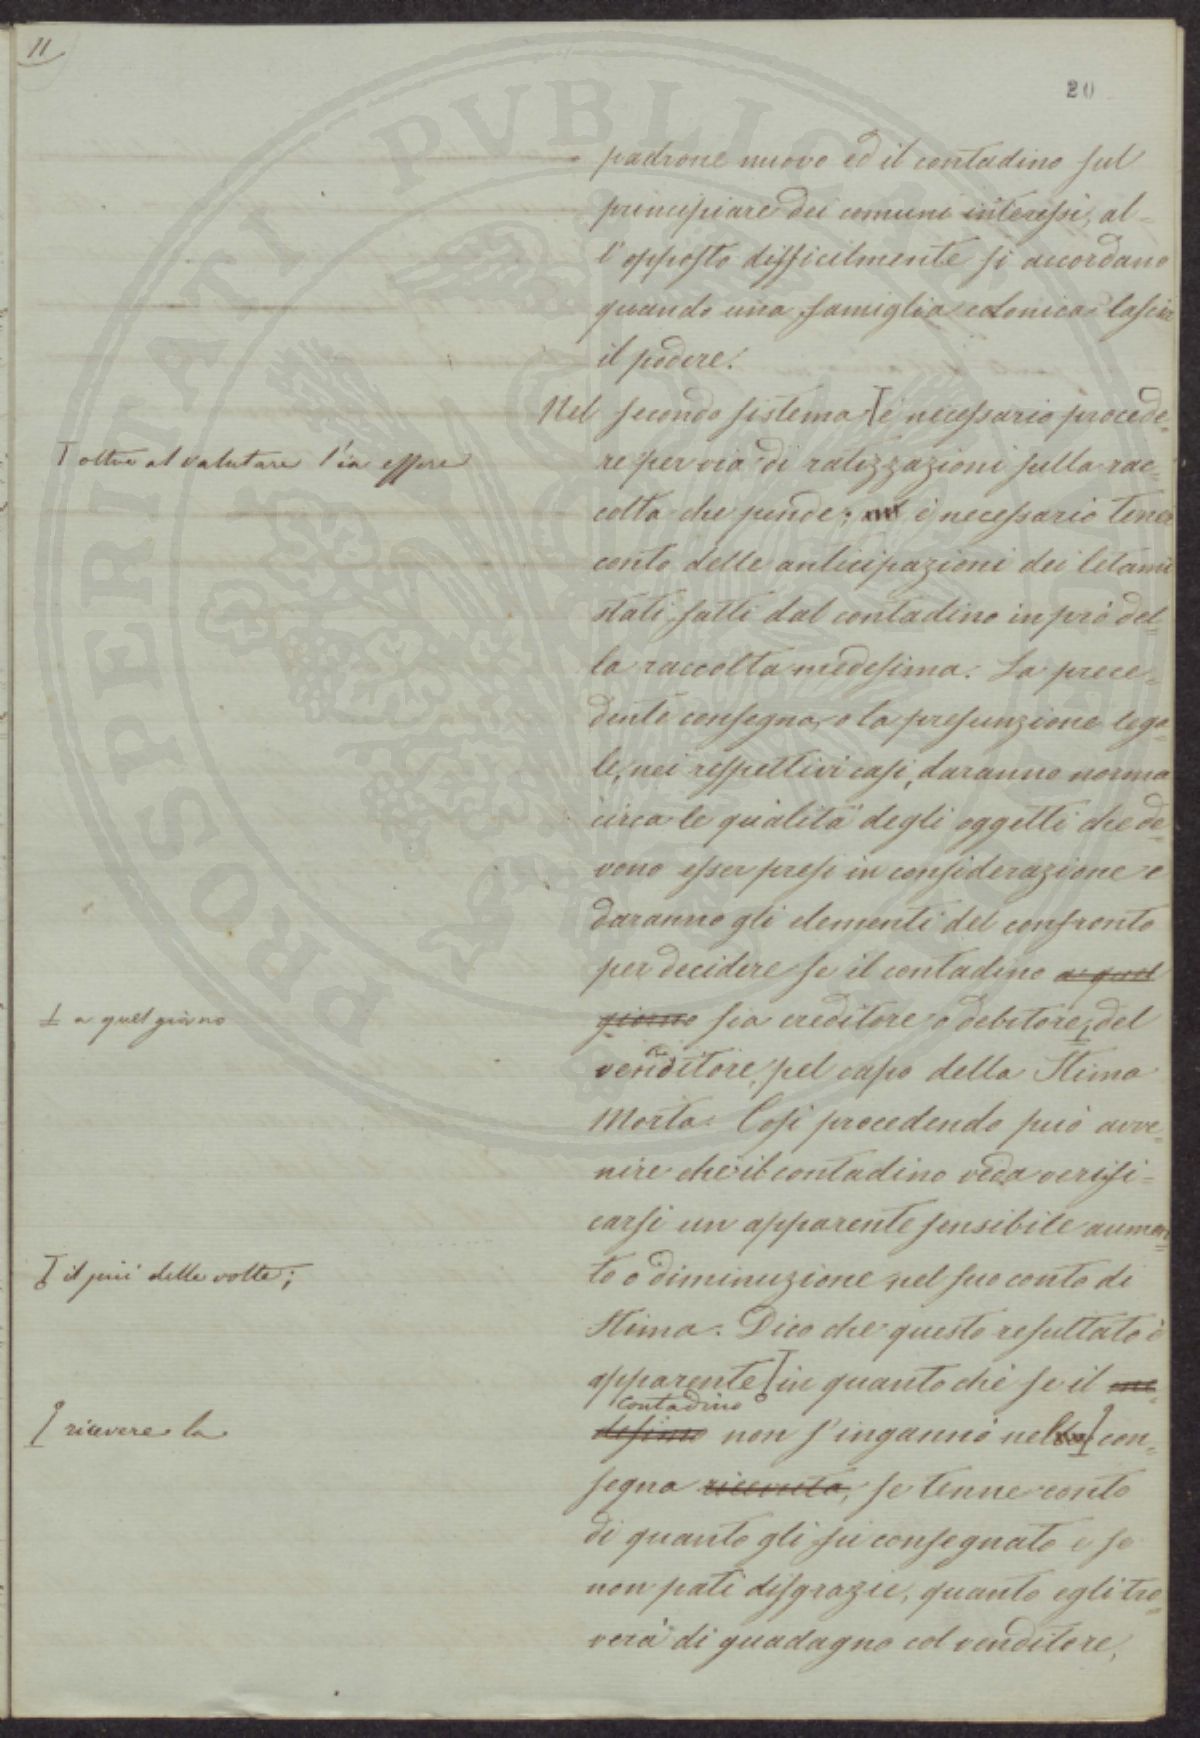 11
20
padrone nuovo ed il contadino sul
principiare dei comuni interessi, al=
l'opposto difficilmente si accordano
quando una famiglia colonica lascia
il podere.
Nel secondo sistema è necessario procede=
T oltre al valutare l'in essere
re per via di ratizzazioni sulla rac=
colta che pende; è necessario tener
conto delle anticipazioni dei letami
stati fatti dal contadino in prò del=
la raccolta medesima. La prece=
dente consegna, o la presunzione lega=
le, nei respettivi casi, daranno norma
circa le qualità degli oggetti che de=
vono esser presi in considerazione e
daranno gli elementi del confronto
per decidere se il contadino a quel
⊥ a quel giorno
giorno sia creditore o debitore, del
venditore, pel capo della Stima
Morta. Così procedendo può avve=
nire che il contadino veda verifi=
carsi un apparente sensibile aumen=
T il più delle volte;
to o diminuzione nel suo conto di
Stima. Dico che questo resultato è
apparente in quanto che se il me=
contadino
ricevere la
desimo non s'ingannò nel con=
segna ricevuta, se tenne conto
di quanto gli fu consegnato e se
non patì disgrazie, quanto egli tro=
verà di guadagno col venditore,
PROSPERITATI PUBLICAE